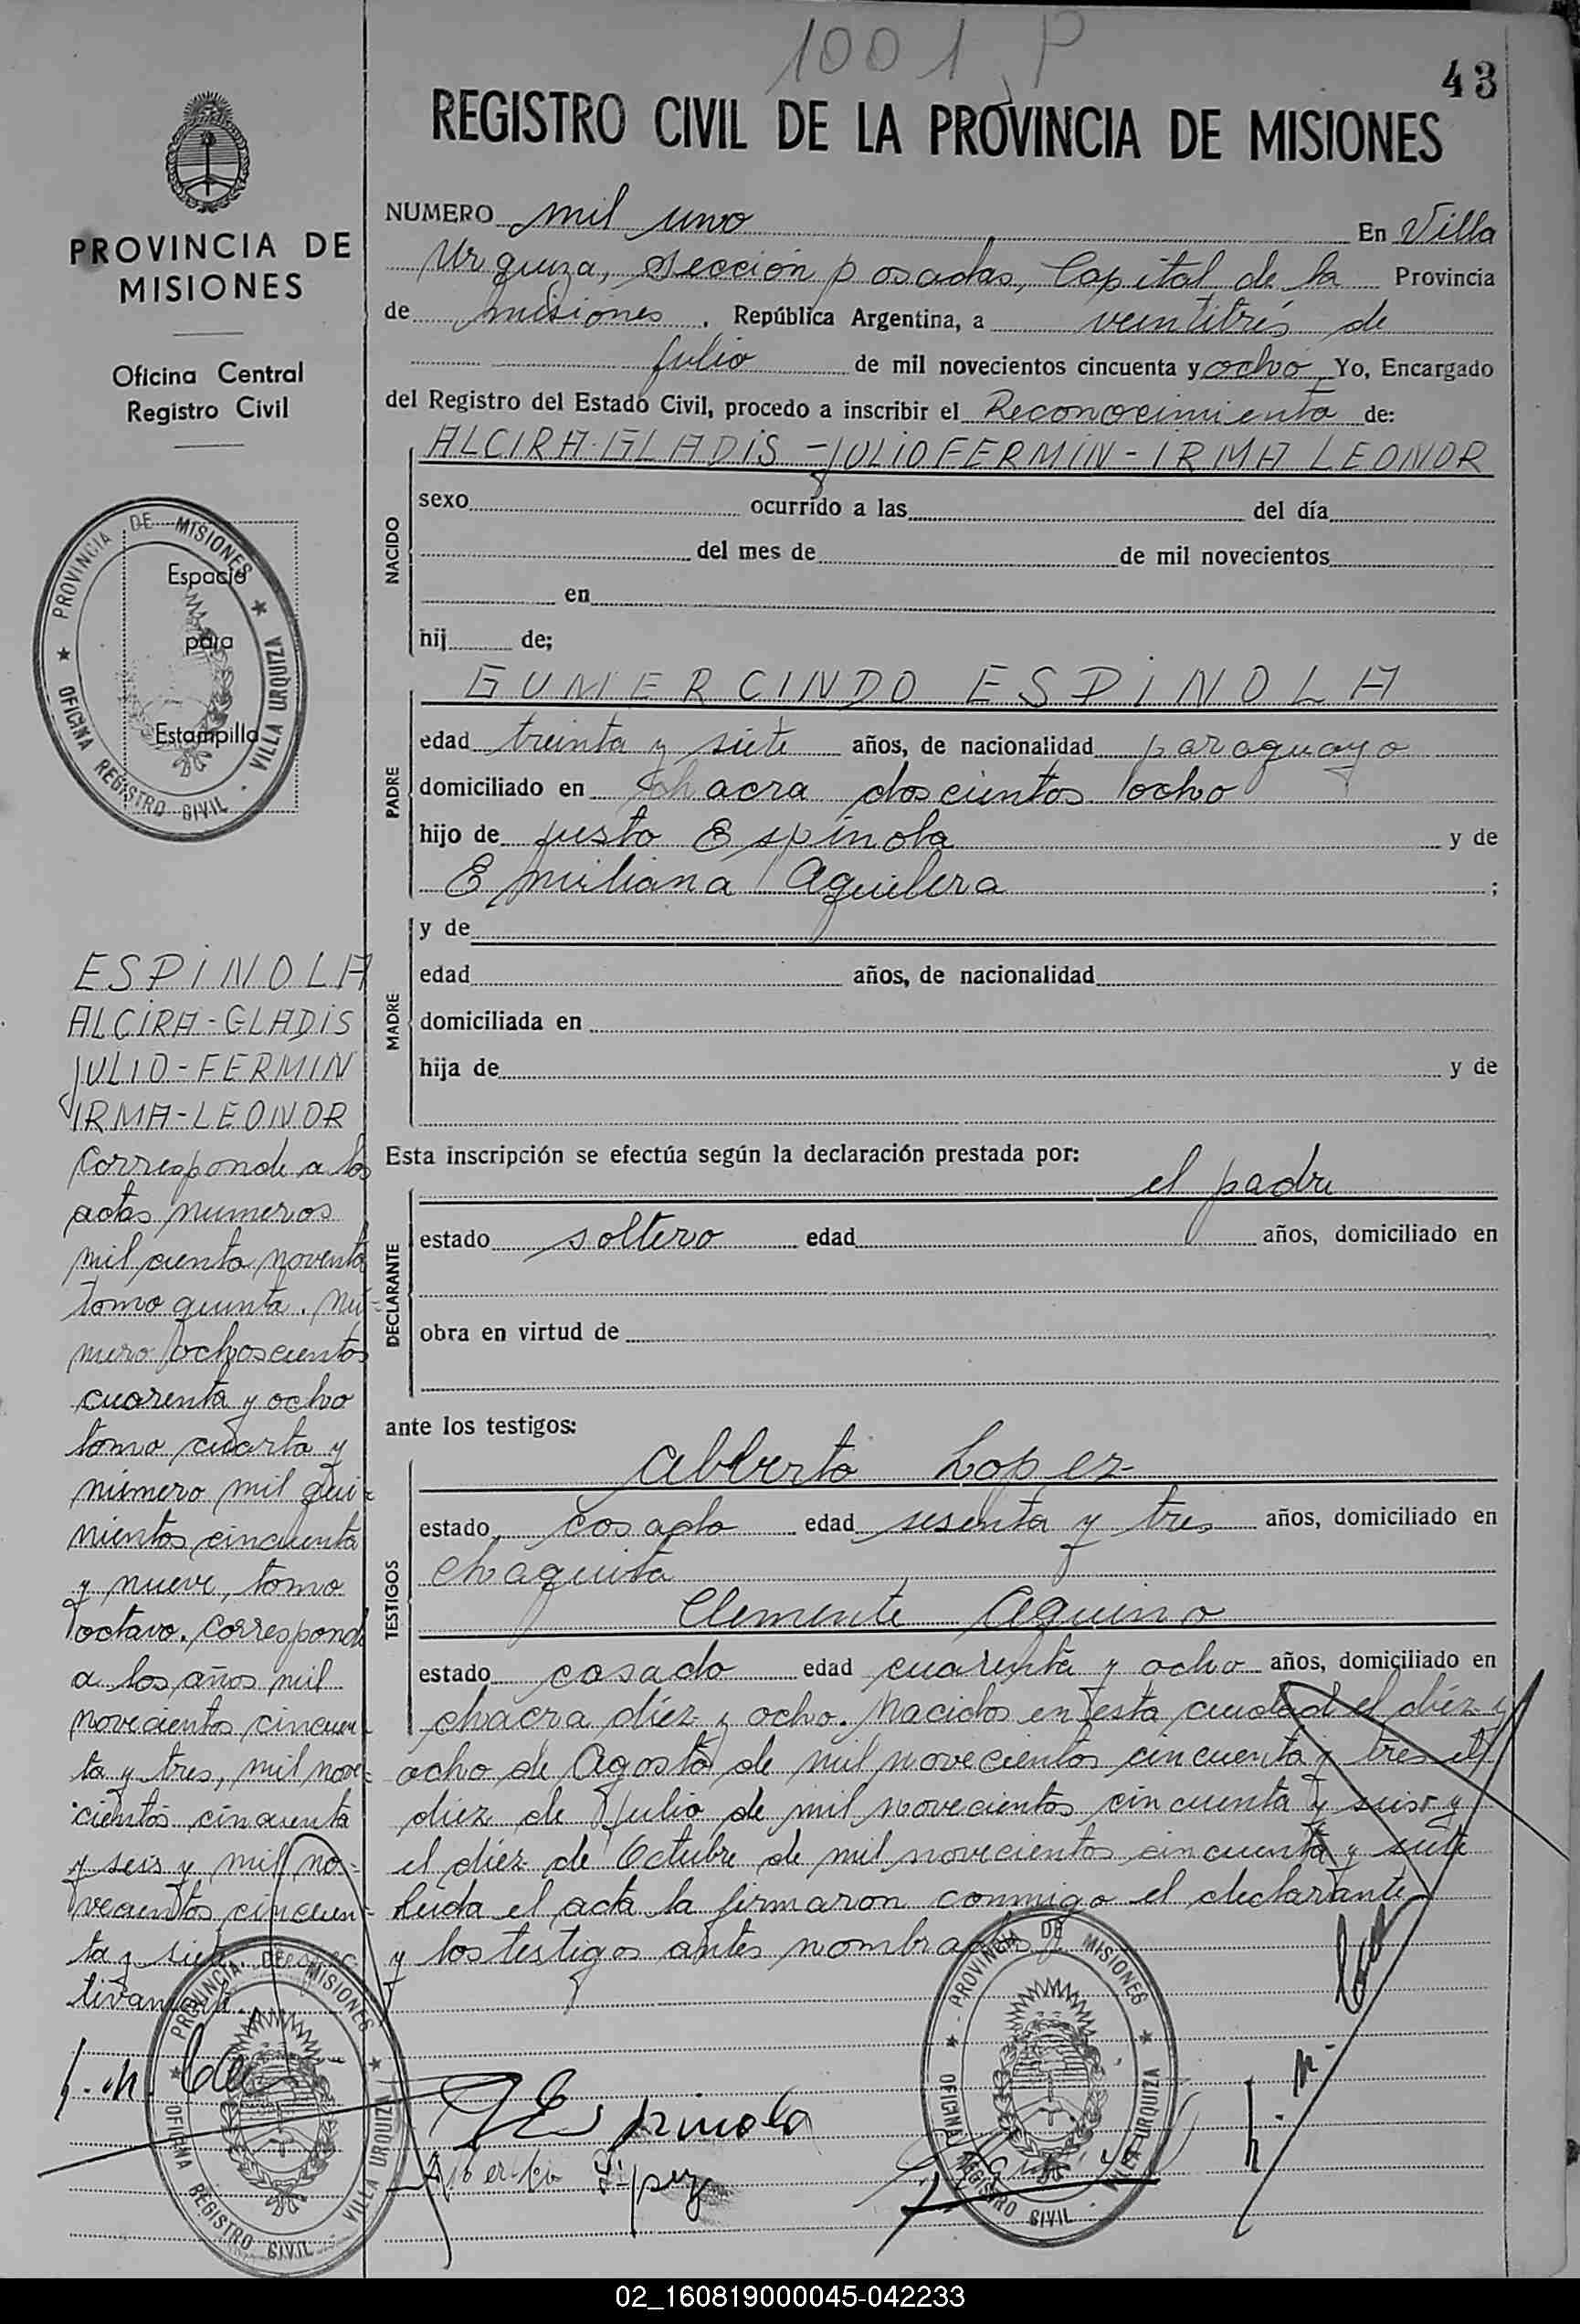 1001 P
43
REGISTRO CIVIL DE LA PROVINCIA DE MISIONES
PROVINCIA DE
MISIONES
Oficina Central
Registro Civil
PROVINCIA DE MISIONES
OFICINA REGISTRO CIVIL - VILLA URQUIZA
Espacio
para
Estampilla
ESPINOLA
ALCIRA-GLADIS
JULIO-FERMIN
IRMA-LEONOR
Corresponde a los
actas numeros
mil ciento noventa
tomo quinto. Nú-
mero ochoscientos
cuarenta y ocho
tomo cuarto y
número mil qui-
nientos cincuenta
y nueve, tomo
octavo. Corresponde
a los años mil
novecientos cincuen-
ta y tres, mil nove-
cientos cincuenta
y seis y mil no-
vecientos cincuen-
ta y siete
NUMERO mil uno En Villa
Urquiza, sección posadas, Capital de la Provincia
de misiones. República Argentina, a veintitrés de
julio de mil novecientos cincuenta y ocho Yo, Encargado
del Registro del Estado Civil, procedo a inscribir el Reconocimiento de:
NACIDO
ALCIRA-GLADIS - JULIO FERMIN - IRMA LEONOR
sexo ocurrido a las del día
del mes de de mil novecientos
en
hij de;
PADRE
GUMERCINDO ESPINOLA
edad treinta y siete años, de nacionalidad paraguayo
domiciliado en Chacra doscientos ocho
hijo de justo Espinola y de
Emiliana Aguilera ;
MADRE
y de
edad años, de nacionalidad
domiciliada en
hija de y de
Esta inscripción se efectúa según la declaración prestada por:
DECLARANTE
el padre
estado soltero edad años, domiciliado en
obra en virtud de
ante los testigos:
TESTIGOS
Alberto Lopez
estado casado edad sesenta y tres años, domiciliado en
chaquita
Clemente Aquino
estado casado edad cuarenta y ocho años, domiciliado en
chacra díez y ocho. Nacidos en esta ciudad el díez y
ocho de Agosto de mil novecientos cincuenta y tres el
díez de Julio de mil novecientos cincuenta y seis y
el díez de Octubre de mil novecientos cincuenta y siete
Leida el acta la firmaron conmigo el declarante
y los testigos antes nombrados
PROVINCIA DE MISIONES
OFICINA REGISTRO CIVIL - VILLA URQUIZA
PROVINCIA DE MISIONES
OFICINA REGISTRO CIVIL - VILLA URQUIZA
Espinola
02_160819000045-042233